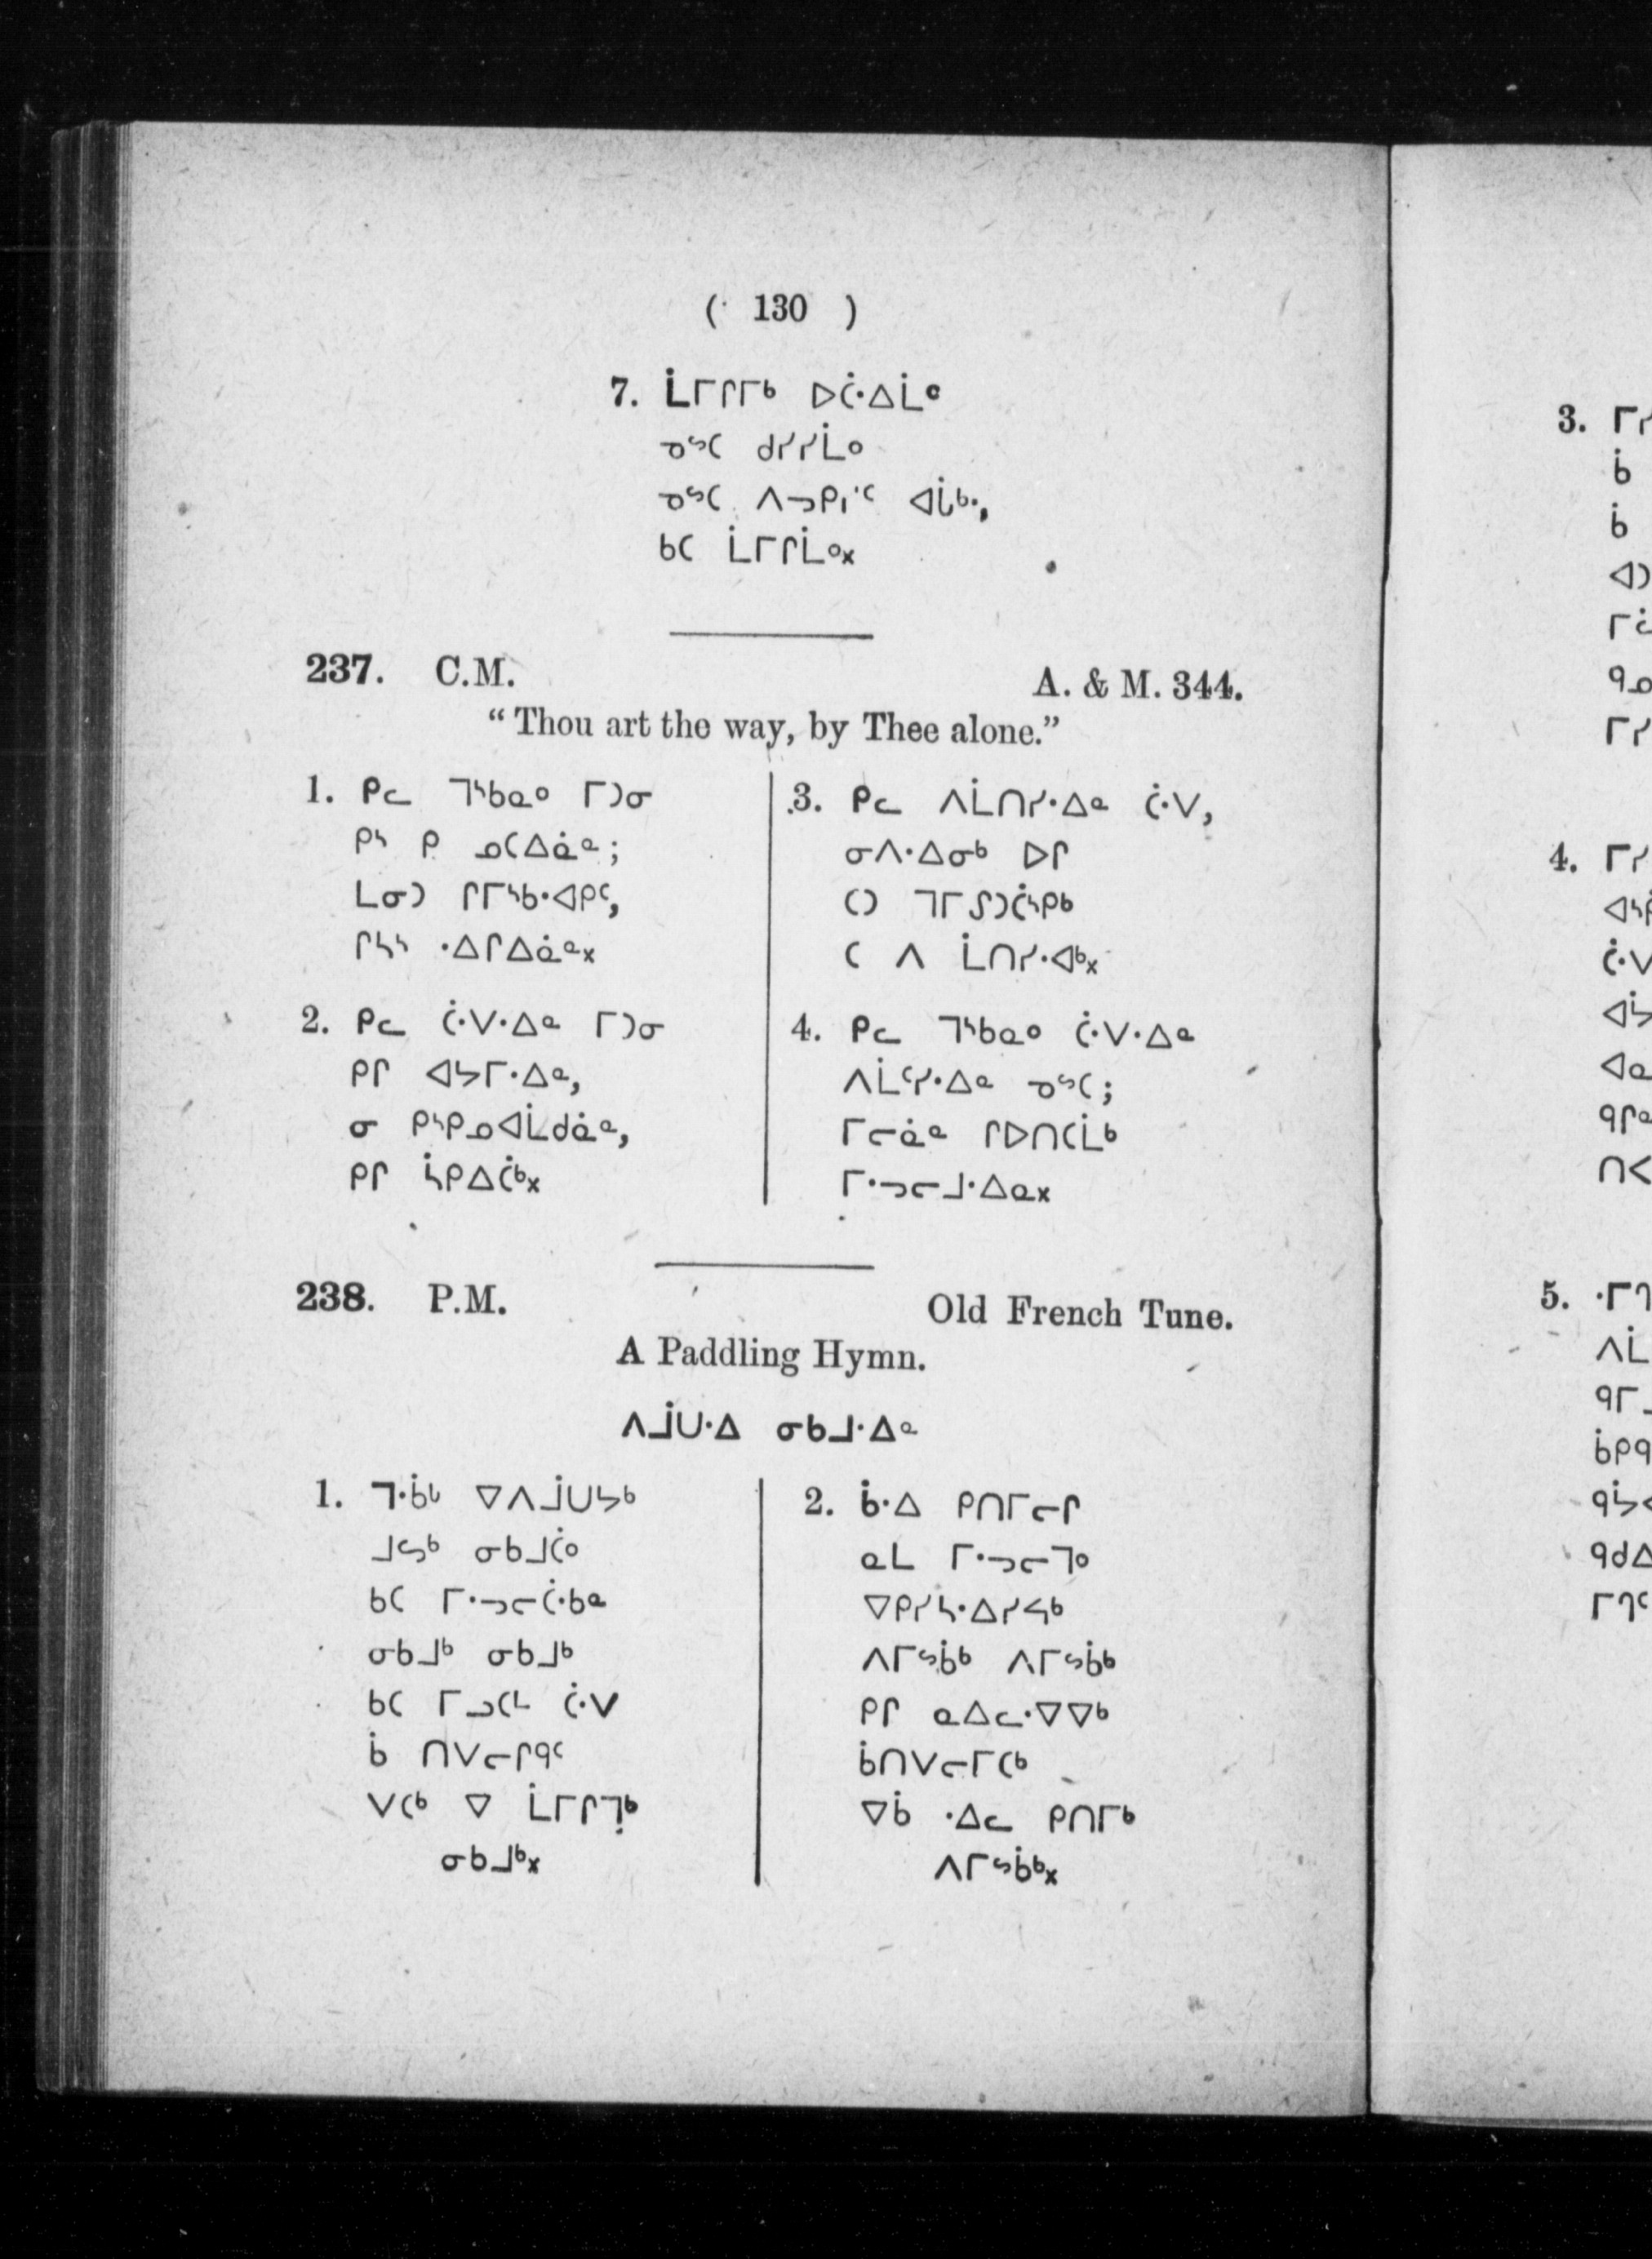 ( 130 )
7. ᒫᒥᒋᒥᒃ ᐅᑖᐧᐃᒫᓐ
ᓀᔥᑕ ᑯᓯᓯᒫᐤ
ᓀᔥᑕ ᐱᓗᑭᒡ ᐊᒑᒃᐧ,
ᑲᑕ ᒫᒥᒋᒫᐤ᙮
237. C.M. A. & M. 344.
“Thou art the way, by Thee alone.”
1. ᑭᓚ ᒣᔅᑲᓇᐤ ᒥᑐᓂ
ᑭᔅ ᑭ ᓄᑕᐃᓈᓐ;
ᒪᓂᑐ ᒋᒥᔅᑲᐧᐊᑭᑦ,
ᒋᓴᔅ ᐧᐃᒋᐃᓈᓐ᙮
2. ᑭᓚ ᑖᐧᐯᐧᐃᓐ ᒥᑐᓂ
ᑭᒋ ᐊᔭᒥᐧᐃᓐ,
ᓂ ᑭᔅᑭᓄᐊᒫᑯᓈᓐ,
ᑭᒋ ᓵᑭᐃᑖᒃ᙮
3. ᑭᓚ ᐱᒫᑎᓯᐧᐃᓐ ᑖᐧᐯ,
ᓂᐱᐧᐃᓂᒃ ᐅᒋ
ᑕᑐ ᒣᒥᔑᑐᑖᔅᑭᒃ
ᑕ ᐱ ᒫᑎᓯᐧᐊᒃ᙮
4. ᑭᓚ ᒣᔅᑲᓇᐤ ᑖᐧᐯᐧᐃᓐ
ᐱᒫᑦᓯᐧᐃᓐ ᓀᔥᑕ;
ᒥᓕᓈᓐ ᒋᐅᑎᑕᒫᒃ
ᒥᐧᓗᓕᒧᐧᐃᓇ᙮
238. P.M. Old French Tune.
A Paddling Hymn.
ᐱᒨᑌᐧᐃ ᓂᑲᒧᐧᐃᓐ
1. ᒣᐧᑳᒡ ᐁᐱᒨᑌᔭᒃ
ᒧᔕᒃ ᓂᑲᒧᑖᐤ
ᑲᑕ ᒥᐧᓗᓕᑖᐧᑲᓐ
ᓂᑲᒧᒃ ᓂᑲᒧᒃ
ᑲᑕ ᒥᓗᑕᒻ ᑖᐧᐯ
ᑳ ᑎᐯᓕᒋᑫᑦ
ᐯᑕᒃ ᐁ ᒫᒥᒋᒣᒃ
ᓂᑲᒧᒃ᙮
2. ᑳᐧᐃ ᑭᑎᒥᓕᒋ
ᓇᒪ ᒥᐧᓗᓕᒣᐤ
ᐁᑭᓯᓴᐧᐃᓯᔭᒃ
ᐱᒥᔥᑳᒃ ᐱᒥᔥᑳᒃ
ᑭᒋ ᓇᐃᓚᐧᐁᐁᒃ
ᑳᑎᐯᓕᒥᑕᒃ
ᐁᑳ ᐧᐃᓚ ᑭᑎᒥᒃ
ᐱᒥᔥᑳᒃ᙮
3.
4.
5.